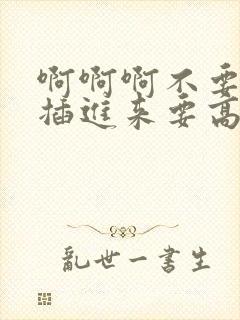 啊啊啊不要
插进来要高
乱世一书生